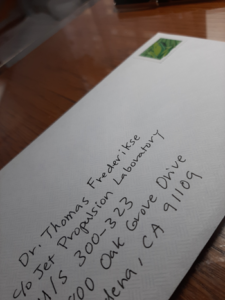 Dr. Thomas Frederikse
c/o Jet Propulsion Laboratory
M/S 300-323
Oak Grove Drive
CA 91109